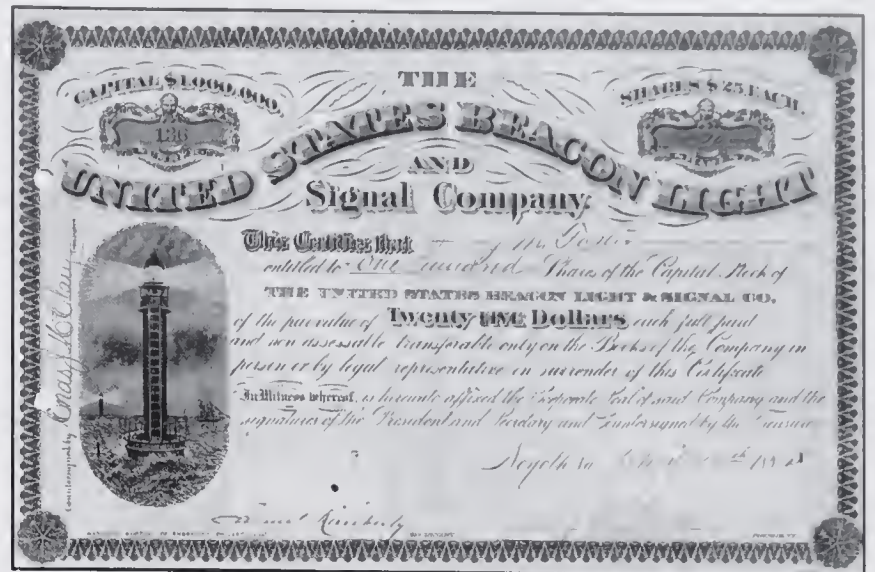 CAPITAL $1,000,000.
THE
SHARES $25 EACH.
136
UNITED STATES BEACON LIGHT
AND
Signal Company
This Certifies that
entitled to One Hundred Shares of the Capital Stock of
THE UNITED STATES BEACON LIGHT & SIGNAL CO.
of the par value of Twenty five Dollars each full paid
and non assessable transferable only on the Books of the Company in
person or by legal representative in surrender of this Certificate
In Witness whereof, is hereunto affixed the Corporate Seal of said Company and the
signatures of the President and Secretary and Countersigned by the Treasurer
Countersigned by
Treasurer
Kimberly
PRESIDENT